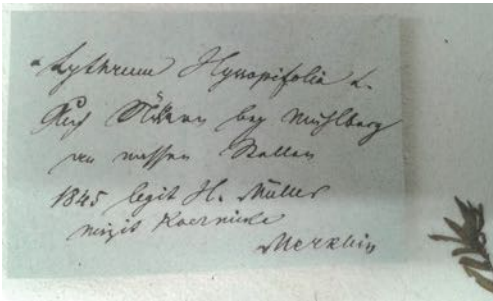 Lythrum Hyssopifolia L.
Auf Äckern bey Mühlberg
an nassen Stellen
1845 legit H. Müller
misit Koernicke
Merklin